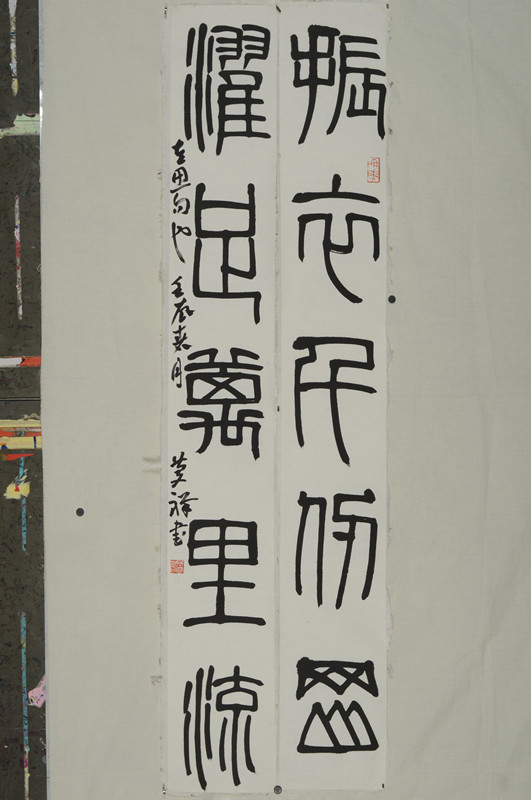 振衣千仞岡
濯足萬里流
左思句也 壬辰 月 祥書